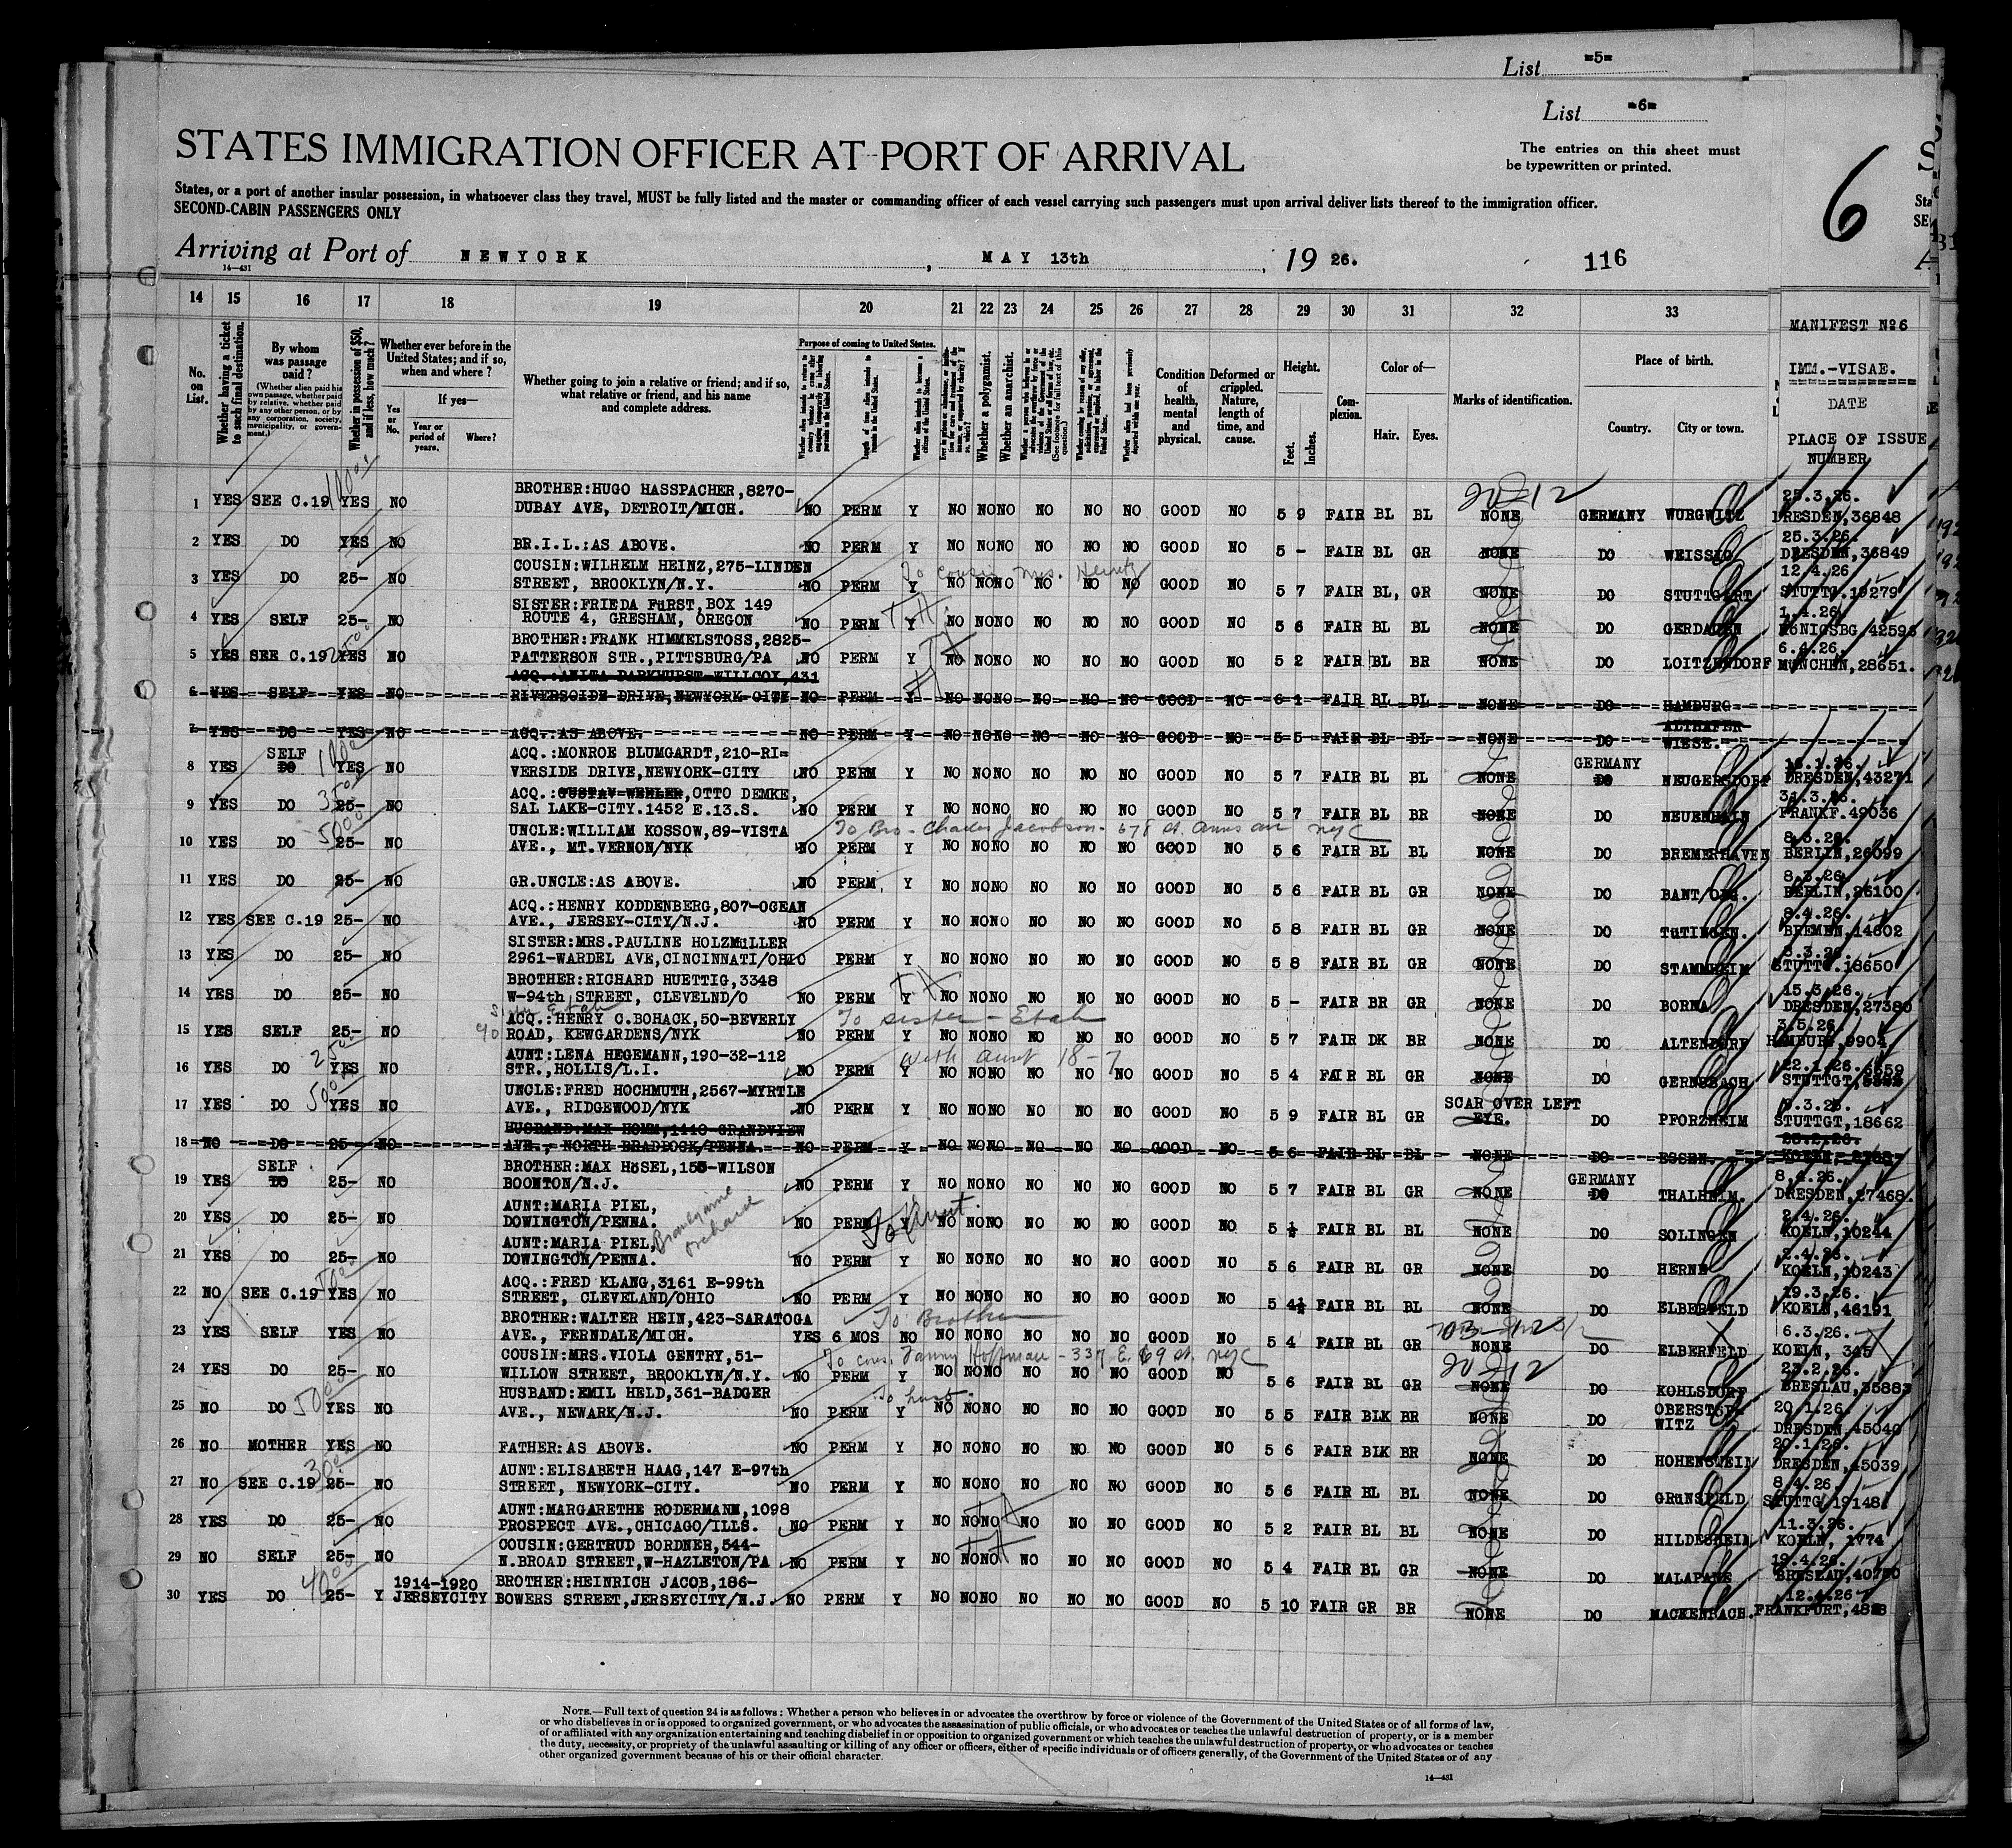 List =5=
List =6=
STATES IMMIGRATION OFFICER AT PORT OF ARRIVAL
The entries on this sheet must
be typewritten or printed.
6
States, or a port of another insular possession, in whatsoever class they travel, MUST be fully listed and the master or commanding officer of each vessel carrying such passengers must upon arrival deliver lists thereof to the immigration officer.
SECOND-CABIN PASSENGERS ONLY
Arriving at Port of NEWYORK, MAY 13th, 1926. 116
14—431
14 15 16 17 18 19 20 21 22 23 24 25 26 27 28 29 30 31 32 33
No. on List.
Whether having a ticket to such final destination.
By whom was passage paid?
(Whether alien paid his own passage, whether paid by relative, whether paid by any other person, or by any corporation, society, municipality, or government.)
Whether in possession of $50, and if less, how much?
Whether ever before in the United States; and if so, when and where?
Yes or No.
If yes—
Year or period of years.
Where?
Whether going to join a relative or friend; and if so, what relative or friend, and his name and complete address.
Purpose of coming to United States.
Length of time alien intends to remain in the United States.
Whether alien intends to become a citizen of the United States.
Whether a polygamist.
Whether an anarchist.
Condition of health, mental and physical.
Deformed or crippled. Nature, length of time, and cause.
Height.
Feet. Inches.
Complexion.
Color of—
Hair. Eyes.
Marks of identification.
Place of birth.
Country. City or town.
MANIFEST No6
IMM.-VISAE.
DATE
PLACE OF ISSUE
NUMBER
20-12
BROTHER:HUGO HASSPACHER,8270- 25.3.26.
1 YES SEE C.19 YES NO DUBAY AVE, DETROIT/MICH. NO PERM Y NO NO NO NO NO NO GOOD NO 5 9 FAIR BL BL NONE GERMANY WURGWITZ DRESDEN,36848
25.3.26.
2 YES DO YES NO BR.I.L.:AS ABOVE. NO PERM Y NO NO NO NO NO NO GOOD NO 5 - FAIR BL GR NONE DO WEISSIG DRESDEN,36849
COUSIN:WILHELM HEINZ,275-LINDEN To cousin Mrs. 12.4.26
3 YES DO 25- NO STREET, BROOKLYN/N.Y. NO PERM Y NO NO NO NO NO NO GOOD NO 5 7 FAIR BL, GR NONE DO STUTTGART STUTTG.19279
SISTER:FRIEDA FüRST,BOX 149 1.4.26.
4 YES SELF 25- NO ROUTE 4, GRESHAM, OREGON NO PERM Y NO NO NO NO NO NO GOOD NO 5 6 FAIR BL BL NONE DO GERDAUEN KöNIGSBG,42593
BROTHER:FRANK HIMMELSTOSS,2825- 6.4.26.
5 YES SEE C.19 YES NO PATTERSON STR.,PITTSBURG/PA NO PERM Y NO NO NO NO NO NO GOOD NO 5 2 FAIR BL BR NONE DO LOITZENDORF MüNCHEN,28651.
ACQ.:ANITA PARKHURST-WILLCOX,431
6 YES SELF YES NO RIVERSOIDE DRIVE,NEWYORK-CITY NO PERM Y NO NO NO NO NO NO GOOD NO 6 1 FAIR BL BL NONE DO HAMBURG
7 YES DO YES NO ACQ.:AS ABOVE. NO PERM Y NO NO NO NO NO NO GOOD NO 5 5 FAIR BL BL NONE DO WIESE.
SELF ACQ.:MONROE BLUMGARDT,210-RI= GERMANY
8 YES DO YES NO VERSIDE DRIVE,NEWYORK-CITY NO PERM Y NO NO NO NO NO NO GOOD NO 5 7 FAIR BL BL NONE DO NEUGERSDORF DRESDEN,43271
ACQ.:GUSTAV WEHLER,OTTO DEMKE, 31.3.26.
9 YES DO 25- NO SAL LAKE-CITY.1452 E.13.S. NO PERM Y NO NO NO NO NO NO GOOD NO 5 7 FAIR BL BR NONE DO NEUENHAIN FRANKF.49036
UNCLE:WILLIAM KOSSOW,89-VISTA To Bro - Charles Jacobson - 678 St. Anns ave nyc 8.3.26.
10 YES DO 25- NO AVE., MT.VERNON/NYK NO PERM Y NO NO NO NO NO NO GOOD NO 5 6 FAIR BL BL NONE DO BREMERHAVEN BERLIN,26099
8.3.26.
11 YES DO 25- NO GR.UNCLE:AS ABOVE. NO PERM Y NO NO NO NO NO NO GOOD NO 5 6 FAIR BL GR NONE DO BANT/OLG. BERLIN,26100
ACQ.:HENRY KODDENBERG,807-OGEAN 8.4.26.
12 YES SEE C.19 25- NO AVE., JERSEY-CITY/N.J. NO PERM Y NO NO NO NO NO NO GOOD NO 5 8 FAIR BL GR NONE DO TüTINGEN. BREMEN,14602
SISTER:MRS.PAULINE HOLZMüLLER 8.3.26.
13 YES DO 25- NO 2961-WARDEL AVE,CINCINNATI/OHIO PERM Y NO NO NO NO NO NO GOOD NO 5 8 FAIR BL GR NONE DO STAMMHEIM STUTTG.18650
BROTHER:RICHARD HUETTIG,3348 15.3.26.
14 YES DO 25- NO W-94th STREET, CLEVELND/O NO PERM Y NO NO NO NO NO NO GOOD NO 5 - FAIR BR GR NONE DO BORNA DRESDEN,27380
ACQ.:HENRY C.BOHACK,50-BEVERLY To sister - Etah 3.5.26.
15 YES SELF 25- NO ROAD, KEWGARDENS/NYK NO PERM Y NO NO NO NO NO NO GOOD NO 5 7 FAIR DK BR NONE DO ALTENDORF HAMBURG,9904
AUNT:LENA HEGEMANN,190-32-112 with aunt 18-7 22.1.26.
16 YES DO YES NO STR.,HOLLIS/L.I. NO PERM Y NO NO NO NO NO NO GOOD NO 5 4 FAIR BL GR NONE DO GERNSBACH STUTTGT,
UNCLE:FRED HOCHMUTH,2567-MYRTLE SCAR OVER LEFT
17 YES DO YES NO AVE., RIDGEWOOD/NYK NO PERM Y NO NO NO NO NO NO GOOD NO 5 9 FAIR BL GR EYE. DO PFORZHEIM STUTTGT,18662
HUSBAND:MAX HOMM,1440 GRANDVIEW
18 NO DO 25- NO AVE., NORTH BRADDOCK/PENNA. NO PERM Y NO NO NO NO NO NO GOOD NO 5 6 FAIR BL BL NONE DO ESSEN
SELF BROTHER:MAX HöSEL,155-WILSON GERMANY 8.4.26.
19 YES DO 25- NO BOONTON/N.J. NO PERM Y NO NO NO NO NO NO GOOD NO 5 7 FAIR BL GR NONE DO THALHEIM. DRESDEN,27468.
AUNT:MARIA PIEL, Brandywine orchard To Aunt. 2.4.26.
20 YES DO 25- NO DOWINGTON/PENNA. NO PERM Y NO NO NO NO NO NO GOOD NO 5 ½ FAIR BL BL NONE DO SOLINGEN KOELN,10244
AUNT:MARIA PIEL, 2.4.26.
21 YES DO 25- NO DOWINGTON/PENNA. NO PERM Y NO NO NO NO NO NO GOOD NO 5 6 FAIR BL GR NONE DO HERNE KOELN,10243
ACQ.:FRED KLANG,3161 E-99th 19.3.26.
22 NO SEE C.19 YES NO STREET, CLEVELAND/OHIO NO PERM Y NO NO NO NO NO NO GOOD NO 5 4½ FAIR BL BL NONE DO ELBERFELD KOELN,46191
BROTHER:WALTER HEIN,423-SARATOGA To Brother 6.3.26.
23 YES SELF YES NO AVE., FERNDALE/MICH. YES 6 MOS NO NO NO NO NO NO NO GOOD NO 5 4 FAIR BL GR NONE DO ELBERFELD KOELN, 345
COUSIN:MRS.VIOLA GENTRY,51- To cous. Fanny Hoffman - 337 E. 69 st. nyc 20-12 23.2.26.
24 YES DO 25- NO WILLOW STREET, BROOKLYN/N.Y. NO PERM Y NO NO NO NO NO NO GOOD NO 5 6 FAIR BL GR NONE DO KOHLSDORF BRESLAU,35883
HUSBAND:EMIL HELD,361-BADGER To husb. 20.1.26.
25 NO DO YES NO AVE., NEWARK/N.J. NO PERM Y NO NO NO NO NO NO GOOD NO 5 5 FAIR BLK BR NONE DO WITZ DRESDEN,45040
20.1.26.
26 NO MOTHER YES NO FATHER:AS ABOVE. NO PERM Y NO NO NO NO NO NO GOOD NO 5 6 FAIR BLK BR NONE DO HOHENSTEIN DRESDEN,45039
AUNT:ELISABETH HAAG,147 E-97th 8.4.26.
27 NO SEE C.19 25- NO STREET, NEWYORK-CITY. NO PERM Y NO NO NO NO NO NO GOOD NO 5 6 FAIR BL BL NONE DO GRüNSFELD STUTTG,19148.
AUNT:MARGARETHE RODERMANN,1098 11.3.26.
28 YES DO 25- NO PROSPECT AVE.,CHICAGO/ILLS. NO PERM Y NO NO NO NO NO NO GOOD NO 5 2 FAIR BL BL NONE DO HILDESHEIM KOELN, 1774
COUSIN:GERTRUD BORDNER,544- 19.4.26.
29 NO SELF 25- NO N.BROAD STREET,W-HAZLETON/PA NO PERM Y NO NO NO NO NO NO GOOD NO 5 4 FAIR BL GR NONE DO MALAPANE BRESLAU,40750
1914-1920 BROTHER:HEINRICH JACOB,186- 12.4.26
30 YES DO 25- Y JERSEYCITY BOWERS STREET,JERSEYCITY/N.J. NO PERM Y NO NO NO NO NO NO GOOD NO 5 10 FAIR GR BR NONE DO MACKENBACH. FRANKFURT,
NOTE.—Full text of question 24 is as follows: Whether a person who believes in or advocates the overthrow by force or violence of the Government of the United States or of all forms of law,
or who disbelieves in or is opposed to organized government, or who advocates the assassination of public officials, or who advocates or teaches the unlawful destruction of property, or is a member
of or affiliated with any organization entertaining and teaching disbelief in or opposition to organized government or which teaches the unlawful destruction of property, or who advocates or teaches
the duty, necessity, or propriety of the unlawful assaulting or killing of any officer or officers, either of specific individuals or of officers generally, of the Government of the United States or of any
other organized government because of his or their official character.
14—431